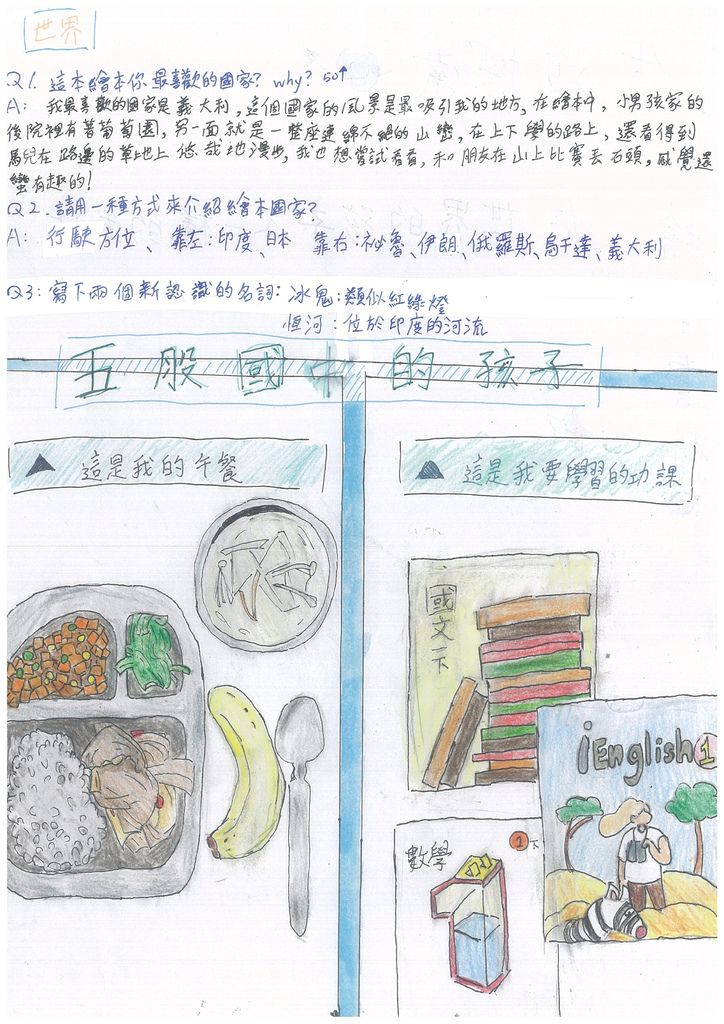 世界
Q1. 這本繪本你最喜歡的國家? why? 50↑
A: 我最喜歡的國家是義大利,這個國家的風景是最吸引我的地方,在繪本中,小男孩家的
後院裡有著葡萄園,另一面就是一整座連綿不絕的山巒,在上下學的路上,還看得到
馬兒在路邊的草地上悠哉地漫步,我也想嘗試看看,和朋友在山上比賽丟石頭,感覺還
蠻有趣的!
Q2. 請用一種方式來介紹繪本國家?
A: 行駛方位、靠左:印度、日本 靠右:祕魯、伊朗、俄羅斯、烏干達、義大利
Q3: 寫下兩個新認識的名詞: 冰鬼:類似紅綠燈
恆河:位於印度的河流
五股國中的孩子
▲ 這是我的午餐
▲ 這是我要學習的功課
國文一下
iEnglish 1
數學 1下